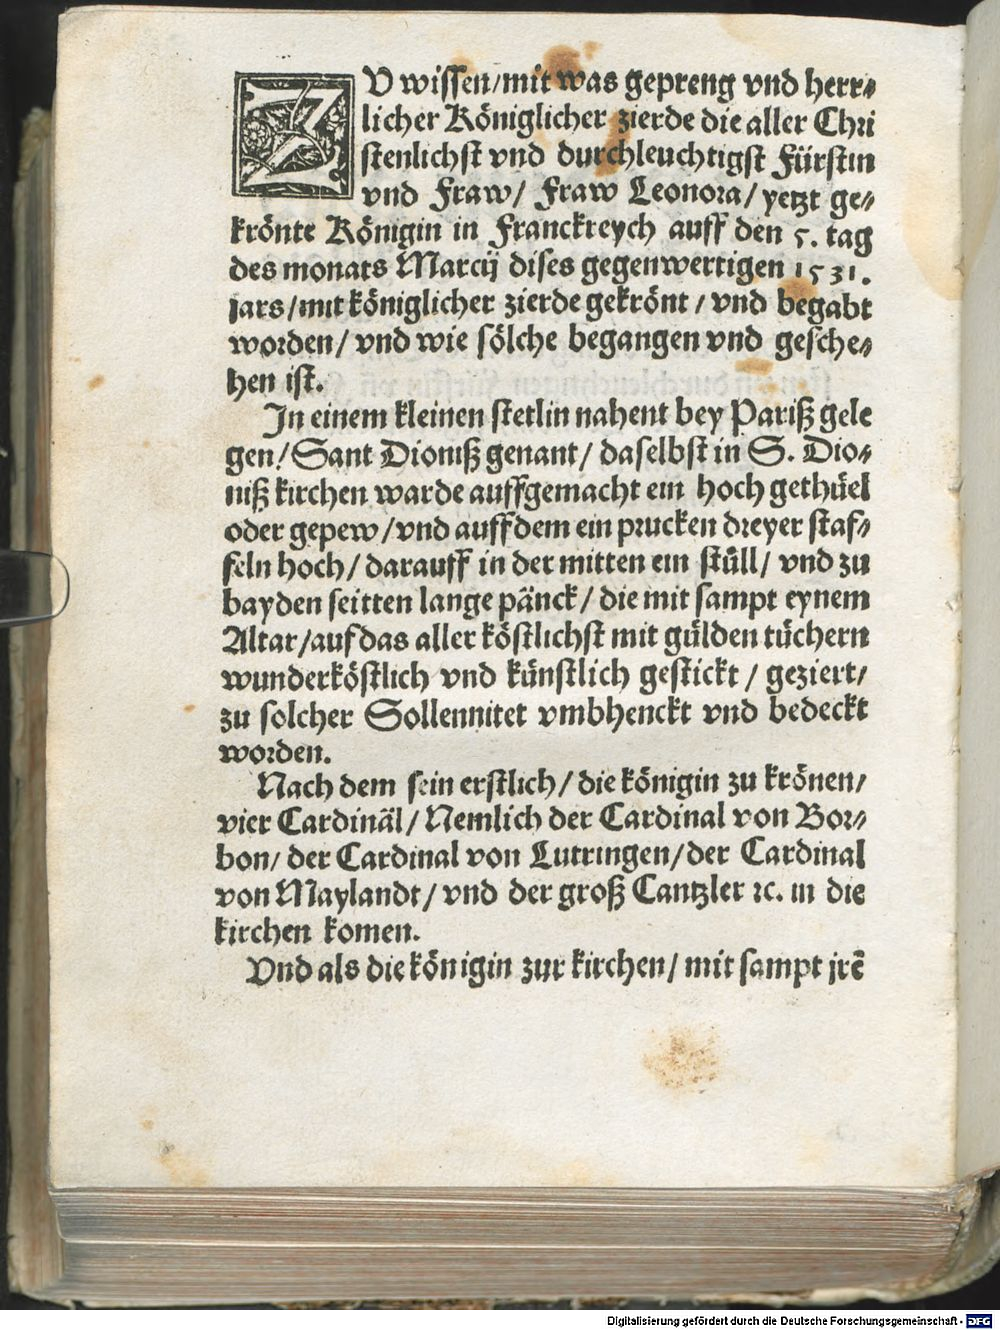 ZV wissen/mit was gepreng vnd herr⸗
licher Königlicher zierde die aller Chri
stenlichst vnd durchleuchtigst Fürstin
vnd Fraw/ Fraw Leonora/ yetzt ge⸗
krönte Königin in Franckreych auff den 5. tag
des monats Marcij dises gegenwertigen 1531.
jars/mit königlicher zierde gekrönt/ vnd begabt
worden/ vnd wie sölche begangen vnd gesche⸗
hen ist.
In einem kleinen stetlin nahent bey Pariß gele
gen/ Sant Dioniß genant/ daselbst in S. Dio⸗
niß kirchen warde auffgemacht ein hoch gethüel
oder gepew/vnd auff dem ein prucken dreyer staf⸗
feln hoch/ darauff in der mitten ein stůll/ vnd zu
bayden seitten lange pänck/ die mit sampt eynem
Altar/auf das aller köstlichst mit gülden tüchern
wunderköstlich vnd künstlich gestickt/ geziert/
zu solcher Sollennitet vmbhenckt vnd bedeckt
worden.
Nach dem sein erstlich/ die königin zu krönen/
vier Cardinäl/ Nemlich der Cardinal von Bor⸗
bon/ der Cardinal von Lutringen/der Cardinal
von Maylandt/ vnd der groß Cantzler ꝛc. in die
kirchen komen.
Vnd als die königin zur kirchen/ mit sampt jrē
Digitalisierung gefördert durch die Deutsche Forschungsgemeinschaft - DFG